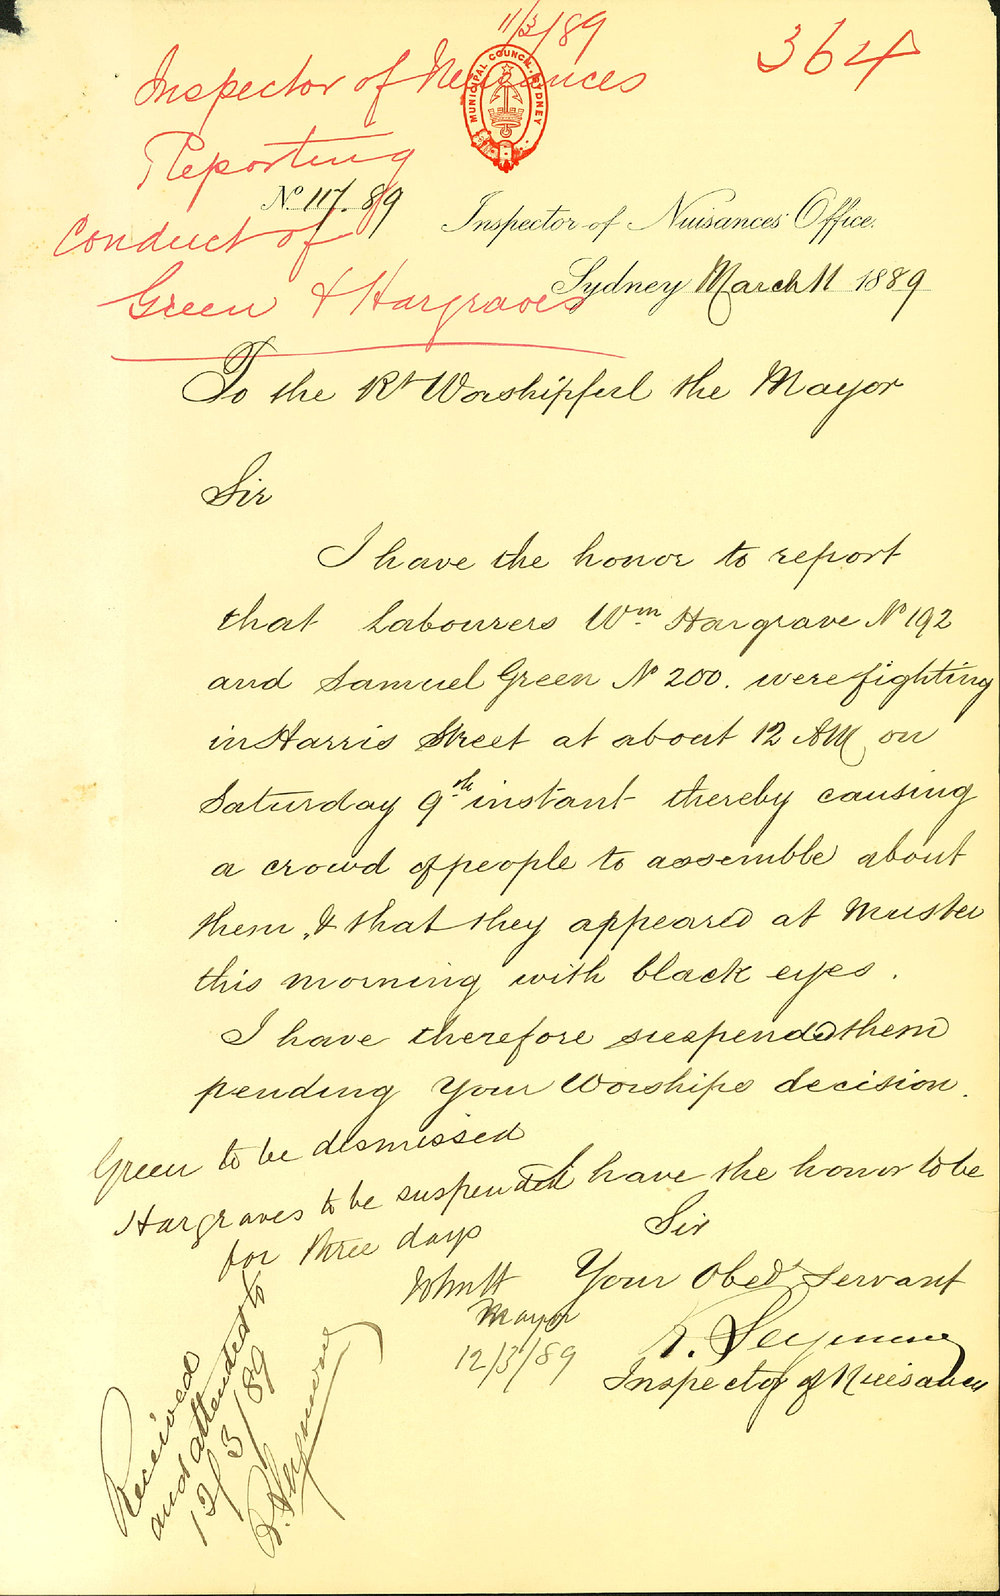 11/3/89
364
Inspector of Nuisances
Reporting
Conduct of
Green & Hargraves
MUNICIPAL COUNCIL SYDNEY
No 117. 89
Inspector of Nuisances Office.
Sydney March 11 1889
To the Rt Worshipful the Mayor
Sir
I have the honor to report
that Labourers Wm Hargrave No 192
and Samuel Green No 200. were fighting
in Harris Street at about 12 AM on
Saturday 9th instant thereby causing
a crowd of people to assemble about
them, & that they appeared at Muster
this morning with black eyes.
I have therefore suspended them
pending Your Worships decision.
Green to be dismissed
Hargraves to be suspended
for three days
Mayor
12/3/89
I have the honor to be
Sir
Your Obedt Servant
R. Seymour
Inspector of Nuisances
Received
and attended to
12/3/89
R. Seymour